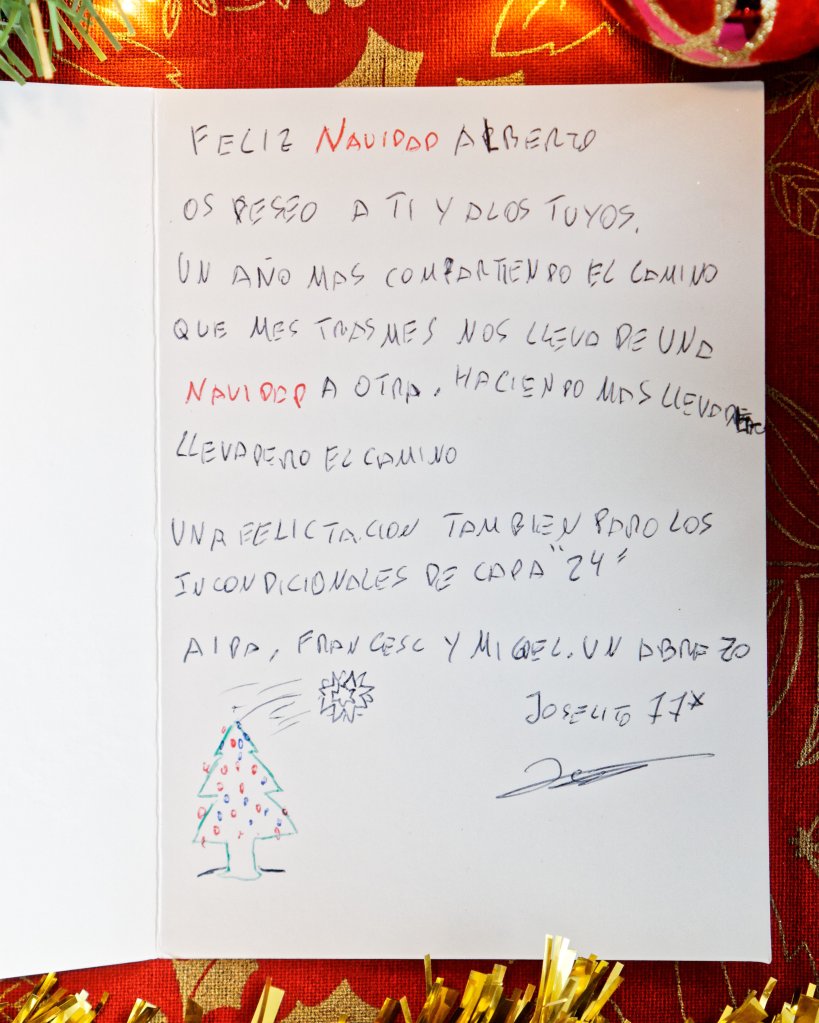 FELIZ NAVIDAD ALBERTO
OS DESEO A TI Y A LOS TUYOS.
UN AÑO MAS COMPARTIENDO EL CAMINO
QUE MES TRAS MES NOS LLEVA DE UNA
NAVIDAD A OTRA, HACIENDO MAS
LLEVADERO EL CAMINO
UNA FELICTACION TAMBIEN PARA LOS
INCONDICIONALES DE CAPA "24"
AIDA, FRANCESC Y MIGUEL. UN ABRAZO
JOSELITO 77*